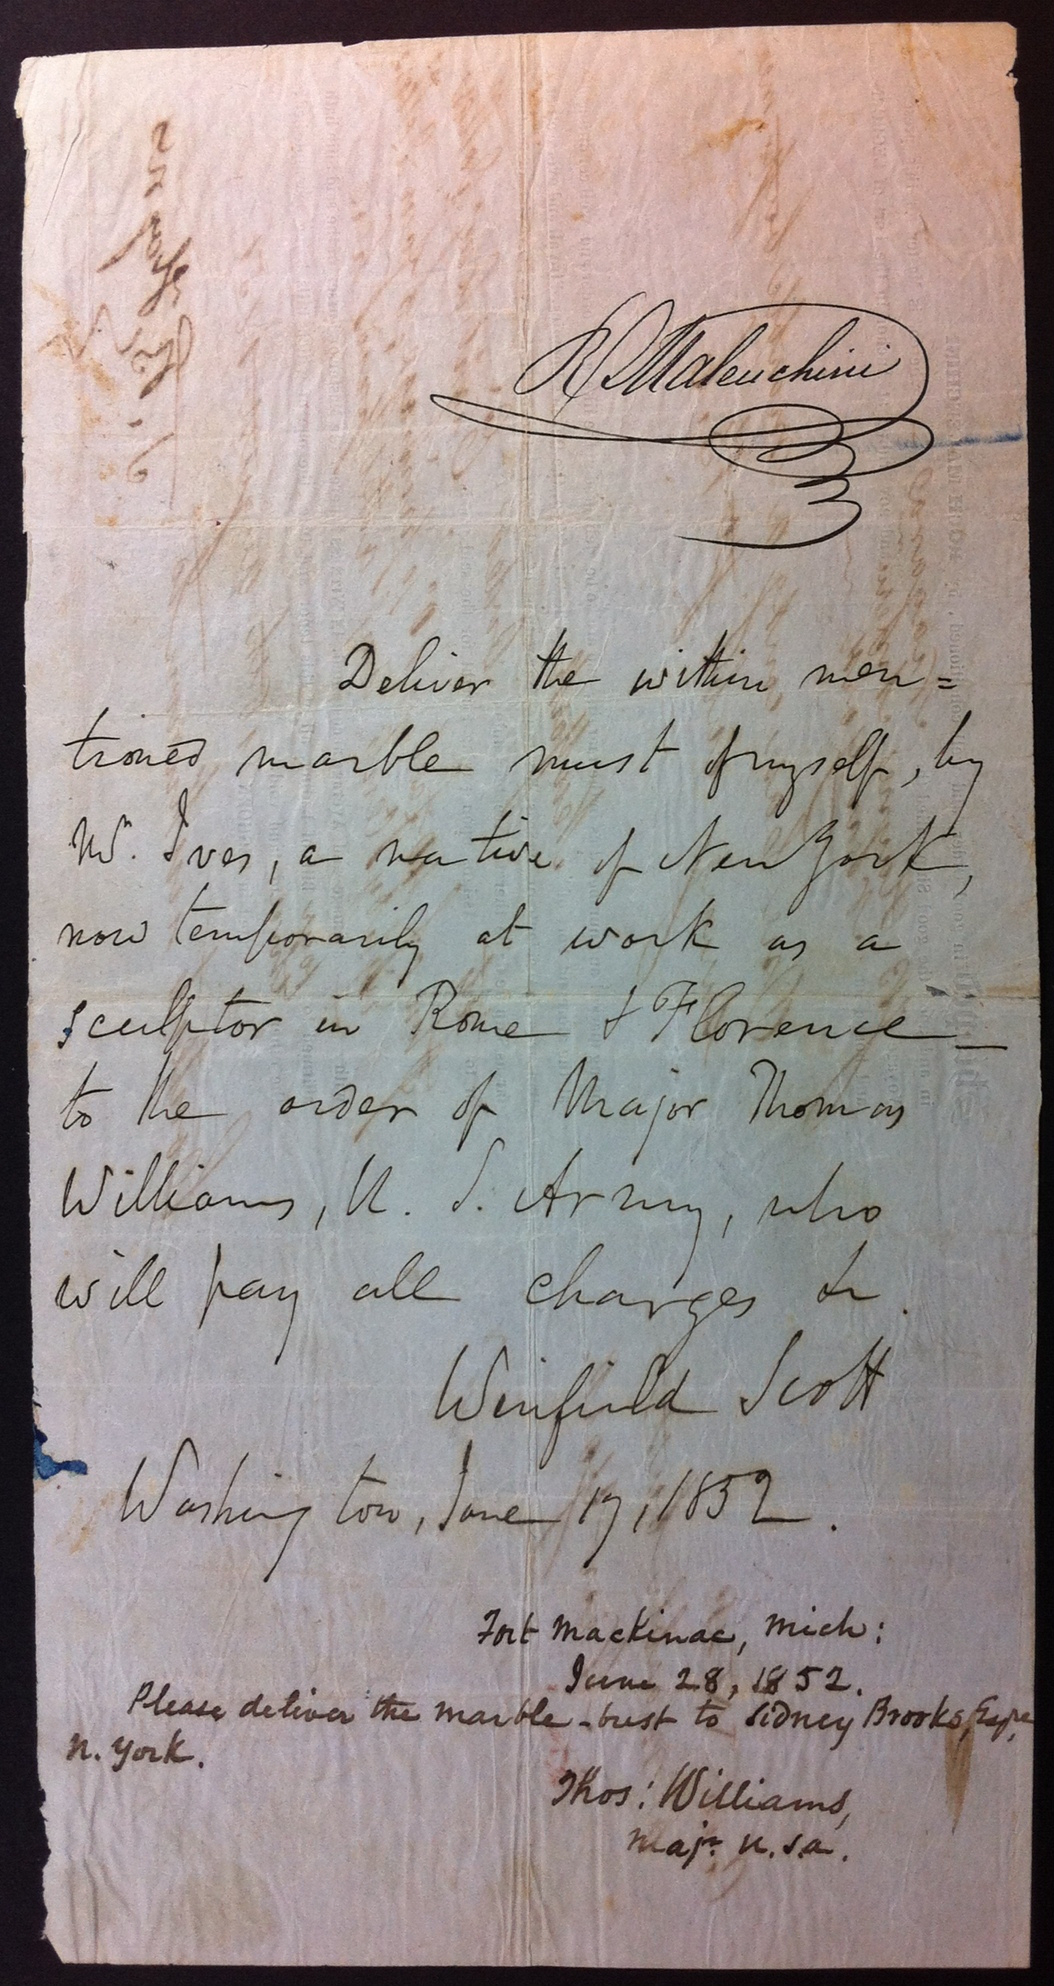 R Maleuchini
Deliver the within men=
tioned marble must of myself, by
Mr. Ives, a native of New York,
now temporarily at work as a
sculptor in Rome & Florence —
to the order of Major Thomas
Williams, U. S. Army, who
will pay all charges &c.
Winfield Scott
Washington, June 17, 1852.
Fort Mackinac, Mich:
June 28, 1852.
Please deliver the marble-bust to Sidney Brooks, Esqre,
N. York.
Thos: Williams,
Majr. U.S.A.